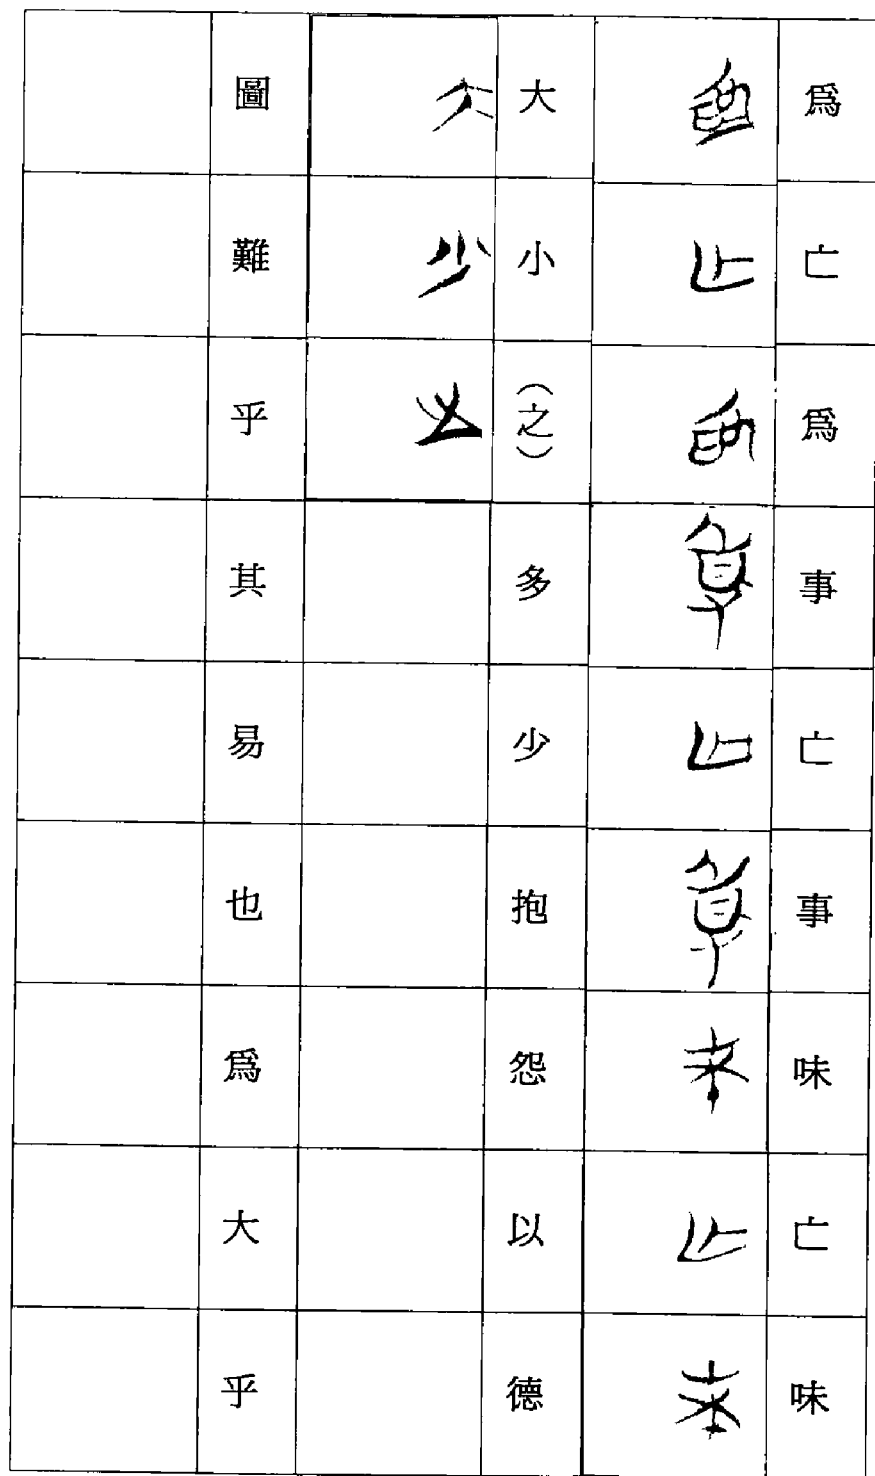 爲亡爲事亡事味亡味
大小(之)多少抱怨以德
圖難乎其易也爲大乎